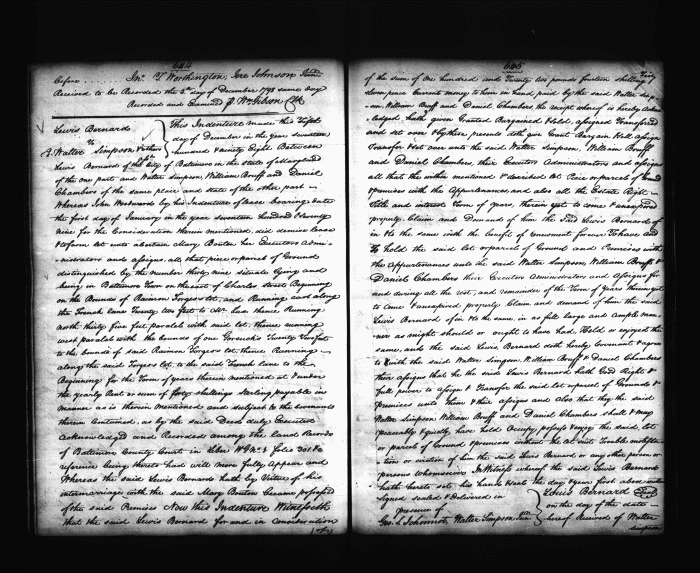 644
before Jno. T. Worthington, Geo Johnson Junr
Received to be Recorded the 8th day of December 1798 same day
Recorded and Examd
Lewis Bernard
to
Walter Simpson & others
This Indenture made this Eighth
day of December in the year seventeen
hundred & ninety Eight Between
Lewis Bernard of the City of Baltimore in the state of Maryland
of the one part and Walter Simpson, William Bruff and Daniel
Chambers of the same place and state of the other part
Whereas John Woodward by his Indenture of lease bearing date
the first day of January in the year seventeen hundred & seventy
nine for the Consideration therein mentioned, did demise lease
& to farm let unto a certain Mary Bouton her Executors Admi-
nistrators and assigns all that piece or parcel of Ground
distinguished by the number thirty nine situate lying and
being in Baltimore Town on the east of Charles street Beginning
on the Bounds of Raimon Forgeos lot, and Running east along
the French lane Twenty two feet to thence Running
north thirty five feet paralel with said lot, thence running
west paralel with the bounds of one Twenty Two feet
to the bounds of said Raimon Forgeos lot, thence Running
along the said Forgeos lot to the said French lane to the
Beginning, for the Term of years therein mentioned at & under
the yearly Rent or sum of forty shillings sterling payable in
manner as is therein Mentioned and subject to the Covenants
therein Contained, as by the said Deed duly Executed
Acknowledged and Recorded among the land Records
of Baltimore County Court in Liber W G No. 3 folio 301 &c
reference being thereto had will more fully appear and
Whereas the said Lewis Bernard hath by Virtue of his
intermarriage with the said Mary Bouton became possessed
of the said Premises Now this Indenture Witnesseth
that the said Lewis Bernard for and in consideration
(of)
645
of the sum of one hundred and Twenty two pounds fourteen shillings
eleven pence Current money to him in hand paid by the said Walter Simp-
son, William Bruff and Daniel Chambers the receipt whereof is hereby acknow
ledged, hath given Granted Bargained & sold, assigned Transfered
and set over & by these presents doth give Grant Bargain Sell assign
Transfer & set over unto the said Walter Simpson, William Bruff
and Daniel Chambers, their Executors Administrators and assigns
all that the within mentioned & described lot Piece or parcel of Ground
& premises with the Appurtenances and also all the Estate Right
Title and interest Term of years, therein yet to come & unexpired
property Claim and Demand of him the said Lewis Bernard of
in & to the same with the benefit of renewment forever To have and
to hold the said lot or parcel of Ground and Premises with
the appurtenances unto the said Walter Simpson, William Bruff &
Daniel Chambers their Executors administrators and assigns for
and during all the rest, and remainder of the Term of Years therein yet
to come & unexpired property Claim and demand of him the said
Lewis Bernard of in & to the same, in as full large and ample man-
ner as might should or ought to have had, Held or enjoyed the
same, and the said Lewis Bernard doth hereby Covenant & agree
to & with the said Walter Simpson William Bruff & Daniel Chambers
their assigns that he the said Lewis Bernard hath Good Right &
full power to assign & Transfer the said lot or parcel of Ground &
premises unto them & their assigns and also that they the said
Walter Simpson, William Bruff and Daniel Chambers shall & may
peaceably & quietly have hold Occupy, possess & enjoy the said, lot
or parcel of Ground & premises without the let suit Trouble molesta-
tion or eviction of him the said Lewis Bernard or any other person or
persons whomsoever In Witness whereof the said Lewis Bernard
hath hereto set his hand & seal the day & year first above written
Signed sealed & Delivered in
presence of
Geo. S Johonnot, Walter Simpson Junr
Louis Bernard Seal
on the day of the date
hereof received of Walter
Simpson